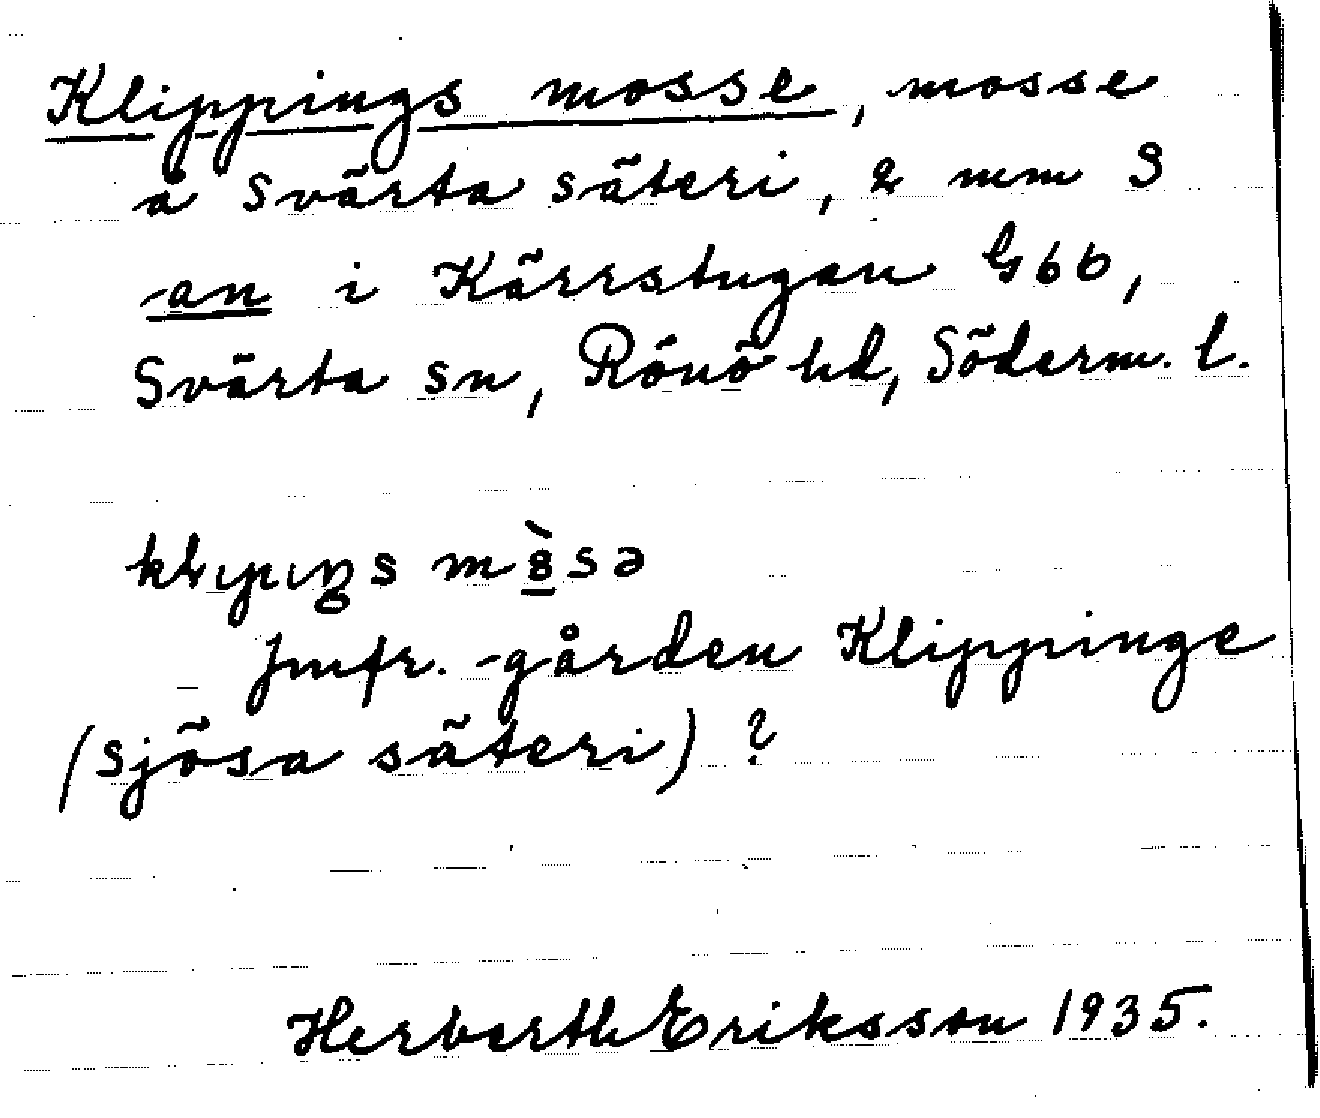 Klippings mosse, mosse
å Svärta säteri, 2 mm S
-an i Kärrstugan G66,
Svärta sn, Rönö hd, Söderm. l.
klɩpɩŋs m
Jmfr. -gården Klippinge
(Sjösa säteri) ?
Herbert Eriksson 1935.